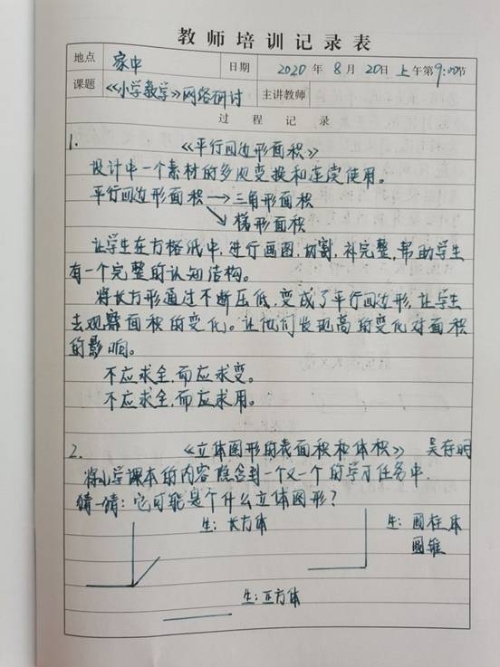 教师培训记录表
地点 家中 日期 2020年8月20日上午第9:00节
课题 《小学数学》网络研讨 主讲教师
过程记录
1. 《平行四边形面积》
设计中一个素材的多次变换和连度使用。
平行四边形面积→三角形面积
↘梯形面积
让学生在方格纸中,进行画图,切割,补完整,帮助学生
有一个完整的认知结构。
将长方形通过不断压低,变成了平行四边形,让学生
去观察面积的变化。让他们发现高的变化对面积
的影响。
不应求全,而应求变。
不应求全,而应求用。
2. 《立体图形的表面积和体积》 吴存明
将小学课本的内容隐含到一个又一个的学习任务中.
猜一猜:它可能是个什么立体图形?
生:长方体 生:圆柱体
圆锥
生:正方体